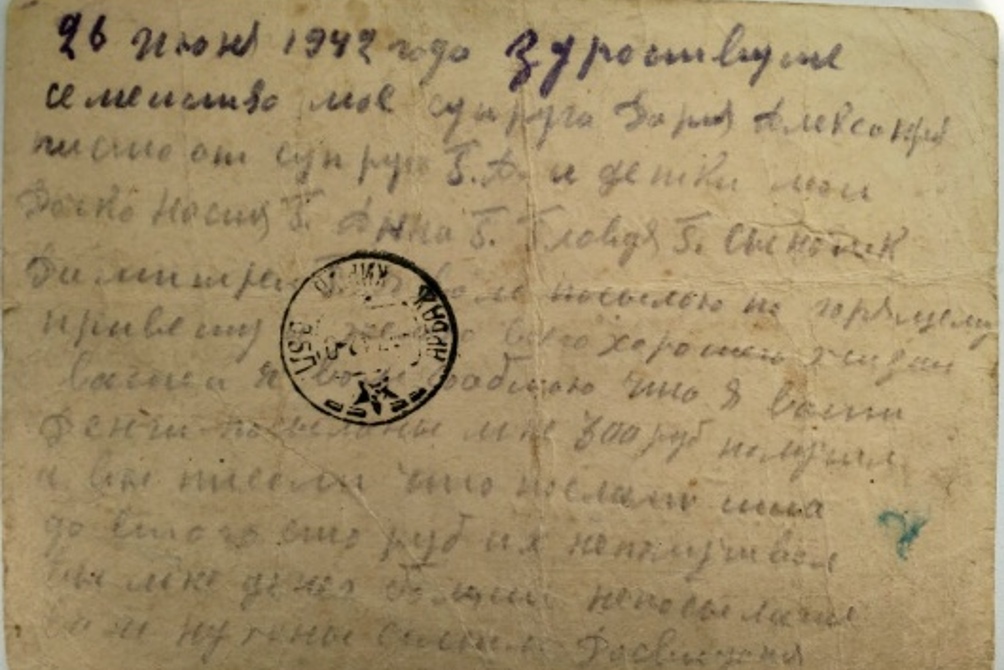 26 июня 1942 года Здроствуите
семеиство мое супруга Дария Александр
писмо от супруга Г.А. и детки мои
Дочко Г. Анна Г. Клавдя Г. сыночик
Димитреи вам посылою по горячему
привету и всего хорошего в жизни
вашеи я вам сообщаю что я ваши
Денги посыланы мне 300 руб получил
и вы писали что послали
до етого сто руб их неполучивал
вы мне денег болши непосылаите
вам нужны самим Досвидания